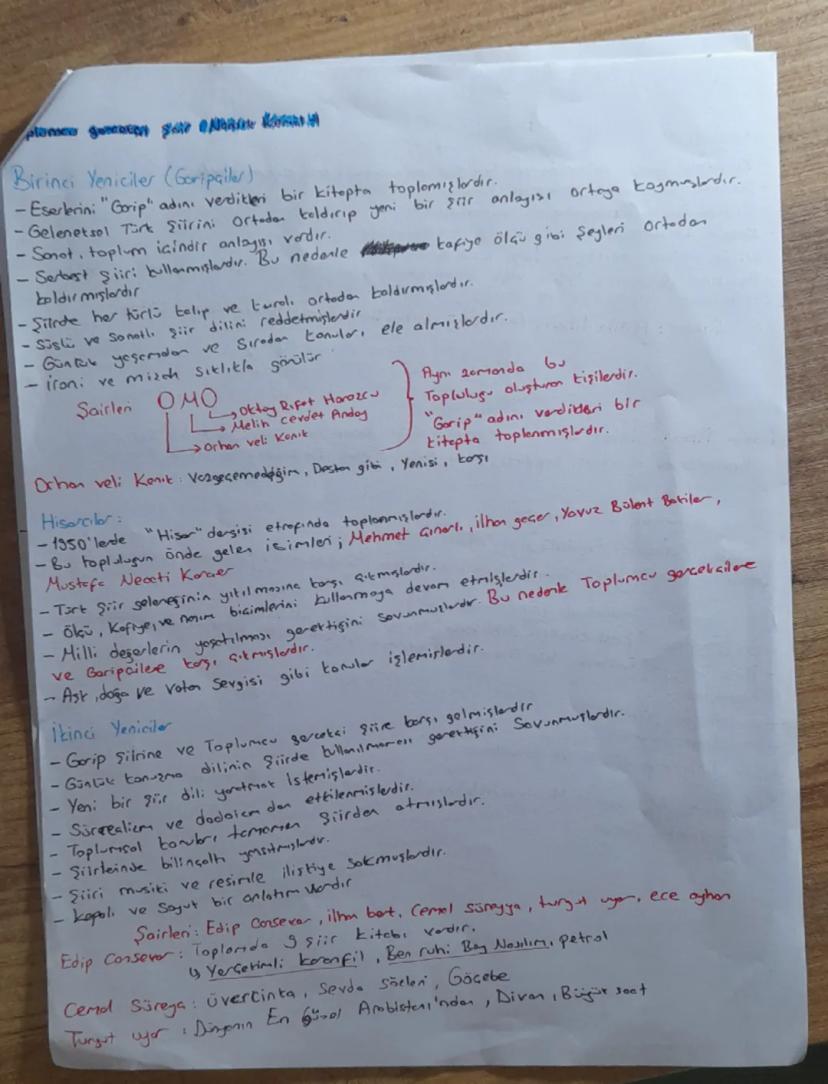 Birinci Yeniciler (Garipçiler)
- Eserlerini "Garip" adını verdikleri bir kitapta toplamışlardır.
- Geleneksel Türk Şiirini ortadan kaldırıp yeni bir şiir anlayışı ortaya koymuşlardır.
- Sanat, toplum içindir anlayışı vardır.
- Serbest şiiri kullanmışlardır. Bu nedenle kafiye ölçü gibi şeyleri ortadan
kaldırmışlardır
- Şiirde her türlü kalıp ve kuralı ortadan kaldırmışlardır.
- Süslü ve sanatlı şiir dilini reddetmişlerdir
- Günlük yaşamdan ve sıradan konuları ele almışlardır.
- İroni ve mizah sıklıkla görülür
Şairleri OMO
Oktay Rıfat Horozcu
Melih Cevdet Anday
Orhan Veli Kanık
Aynı zamanda bu
Topluluğu oluşturan kişilerdir.
"Garip" adını verdikleri bir
kitapta toplanmışlardır.
Orhan Veli Kanık: Vazgeçemediğim, Destan gibi, Yenisi, karşı
Hisarcılar:
- 1950'lerde "Hisar" dergisi etrafında toplanmışlardır.
- Bu topluluğun önde gelen isimleri; Mehmet Çınarlı, ilhan geçer, Yavuz Bülent Bakiler,
Mustafa Necati Karaer
- Türk şiir geleneğinin yıkılmasına karşı çıkmışlardır.
- Ölçü, Kafiye, ve nazım biçimlerini kullanmaya devam etmişlerdir.
- Milli değerlerin yaşatılması gerektiğini savunmuşlardır. Bu nedenle Toplumcu gerçekçilere
ve Garipçilere karşı çıkmışlardır.
- Aşk, doğa ve vatan sevgisi gibi konular işlemişlerdir.
İkinci Yeniciler
- Garip Şiirine ve Toplumcu gerçekçi şiire karşı gelmişlerdir
- Günlük konuşma dilinin şiirde kullanılmaması gerektiğini savunmuşlardır.
- Yeni bir şiir dili yaratmak istemişlerdir.
- Sürrealizm ve dadaizm dan etkilenmişlerdir.
- Toplumsal konuları tamamen şiirden atmışlardır.
- Şiirleinde bilinçaltı yansıtmışlardır.
- Şiiri musiki ve resimle ilişkiye sokmuşlardır.
- Kapalı ve Soyut bir anlatım vardır
Şairleri: Edip Cansever, ilhan berk, Cemal süreyya, turgut uyar, ece ayhan
Edip Cansever: Toplamda 9 şiir kitabı vardır.
Yerçekimli karanfil, Ben ruhi Bey Nasılım, petrol
Cemal Süreya: üvercinka, Sevda sözleri, Göçebe
Turgut uyar: Dünyanın En Güzel Arabistanı'ndan, Divan, Büyük saat